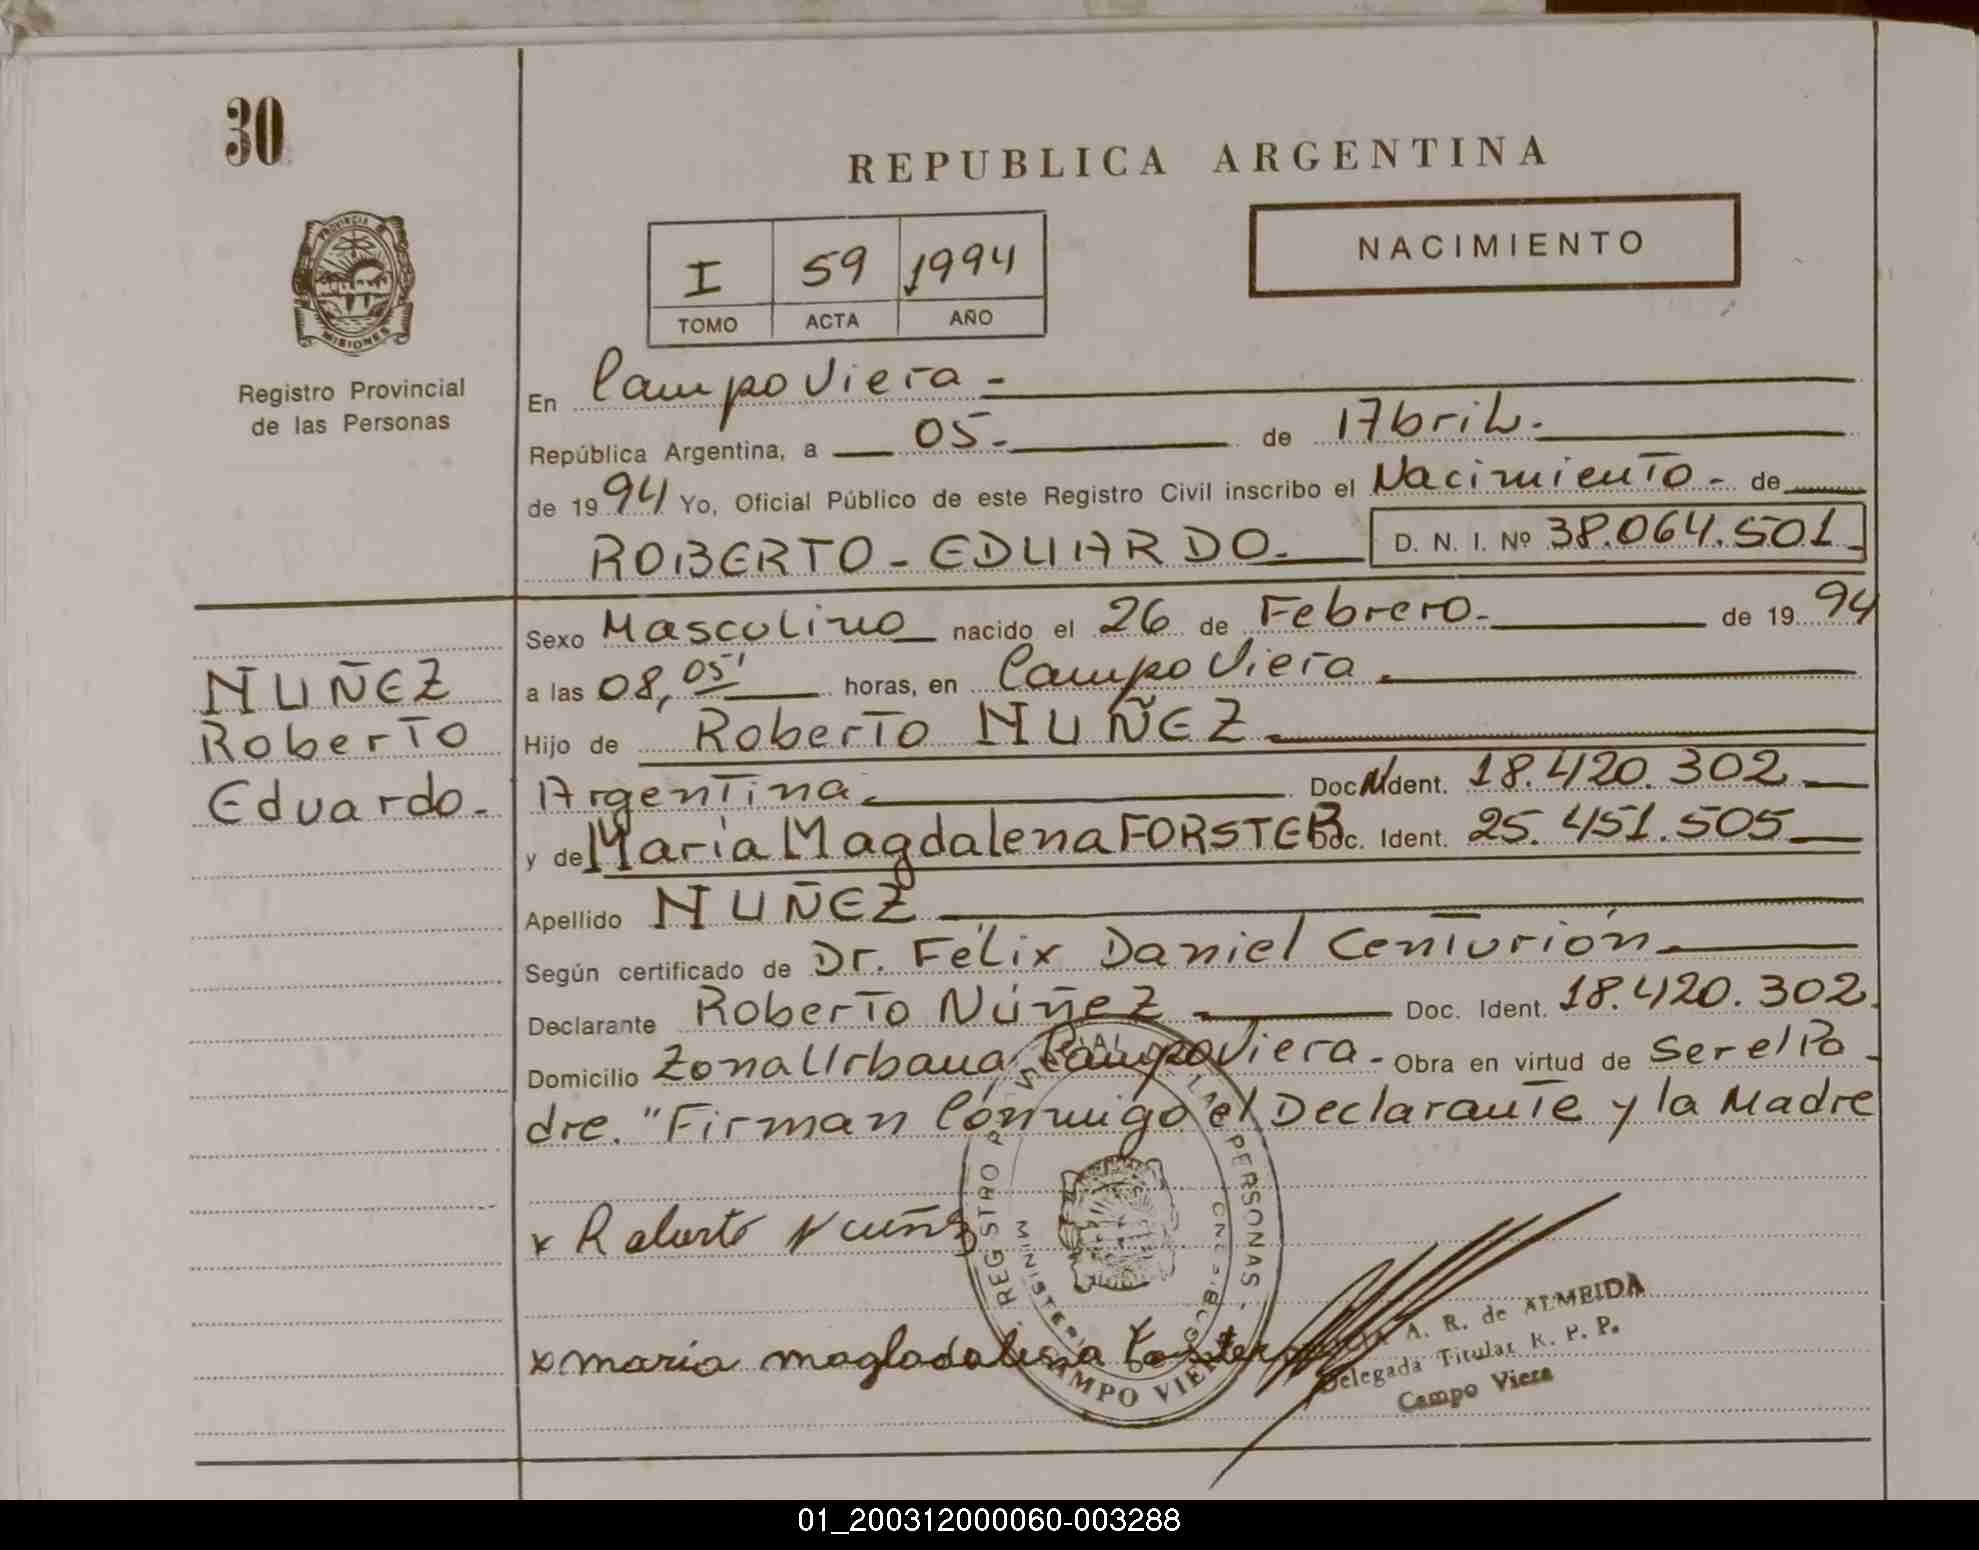 30
REPUBLICA ARGENTINA
NACIMIENTO
I 59 1994
TOMO ACTA AÑO
PROVINCIA
MISIONES
Registro Provincial
de las Personas
En Campo Viera -
República Argentina, a 05- de Abril.
de 1994 Yo, Oficial Público de este Registro Civil inscribo el Nacimiento - de
ROBERTO - EDUARDO. D. N. I. Nº 38.064.501
Sexo Masculino nacido el 26 de Febrero. de 1994
a las 08,05' horas, en Campo Viera
Hijo de Roberto NUÑEZ
Argentina. Doc. Ident. 18.420.302
y de María Magdalena FORSTER Doc. Ident. 25.451.505
Apellido NUÑEZ
Según certificado de Dr. Félix Daniel Centurión
Declarante Roberto Núñez Doc. Ident. 18.420.302.
Domicilio Zona Urbana, Campo Viera - Obra en virtud de Ser el Pa-
dre. "Firman Conmigo el Declarante y la Madre
NUÑEZ
Roberto
Eduardo.
x Roberto Nuñez
x maria magladalena Forster
REGISTRO PERSONAS
MINISTERIO
CAMPO VIERA
A. R. de ALMEIDA
Delegada Titular R. P. P.
Campo Viera
01_200312000060-003288